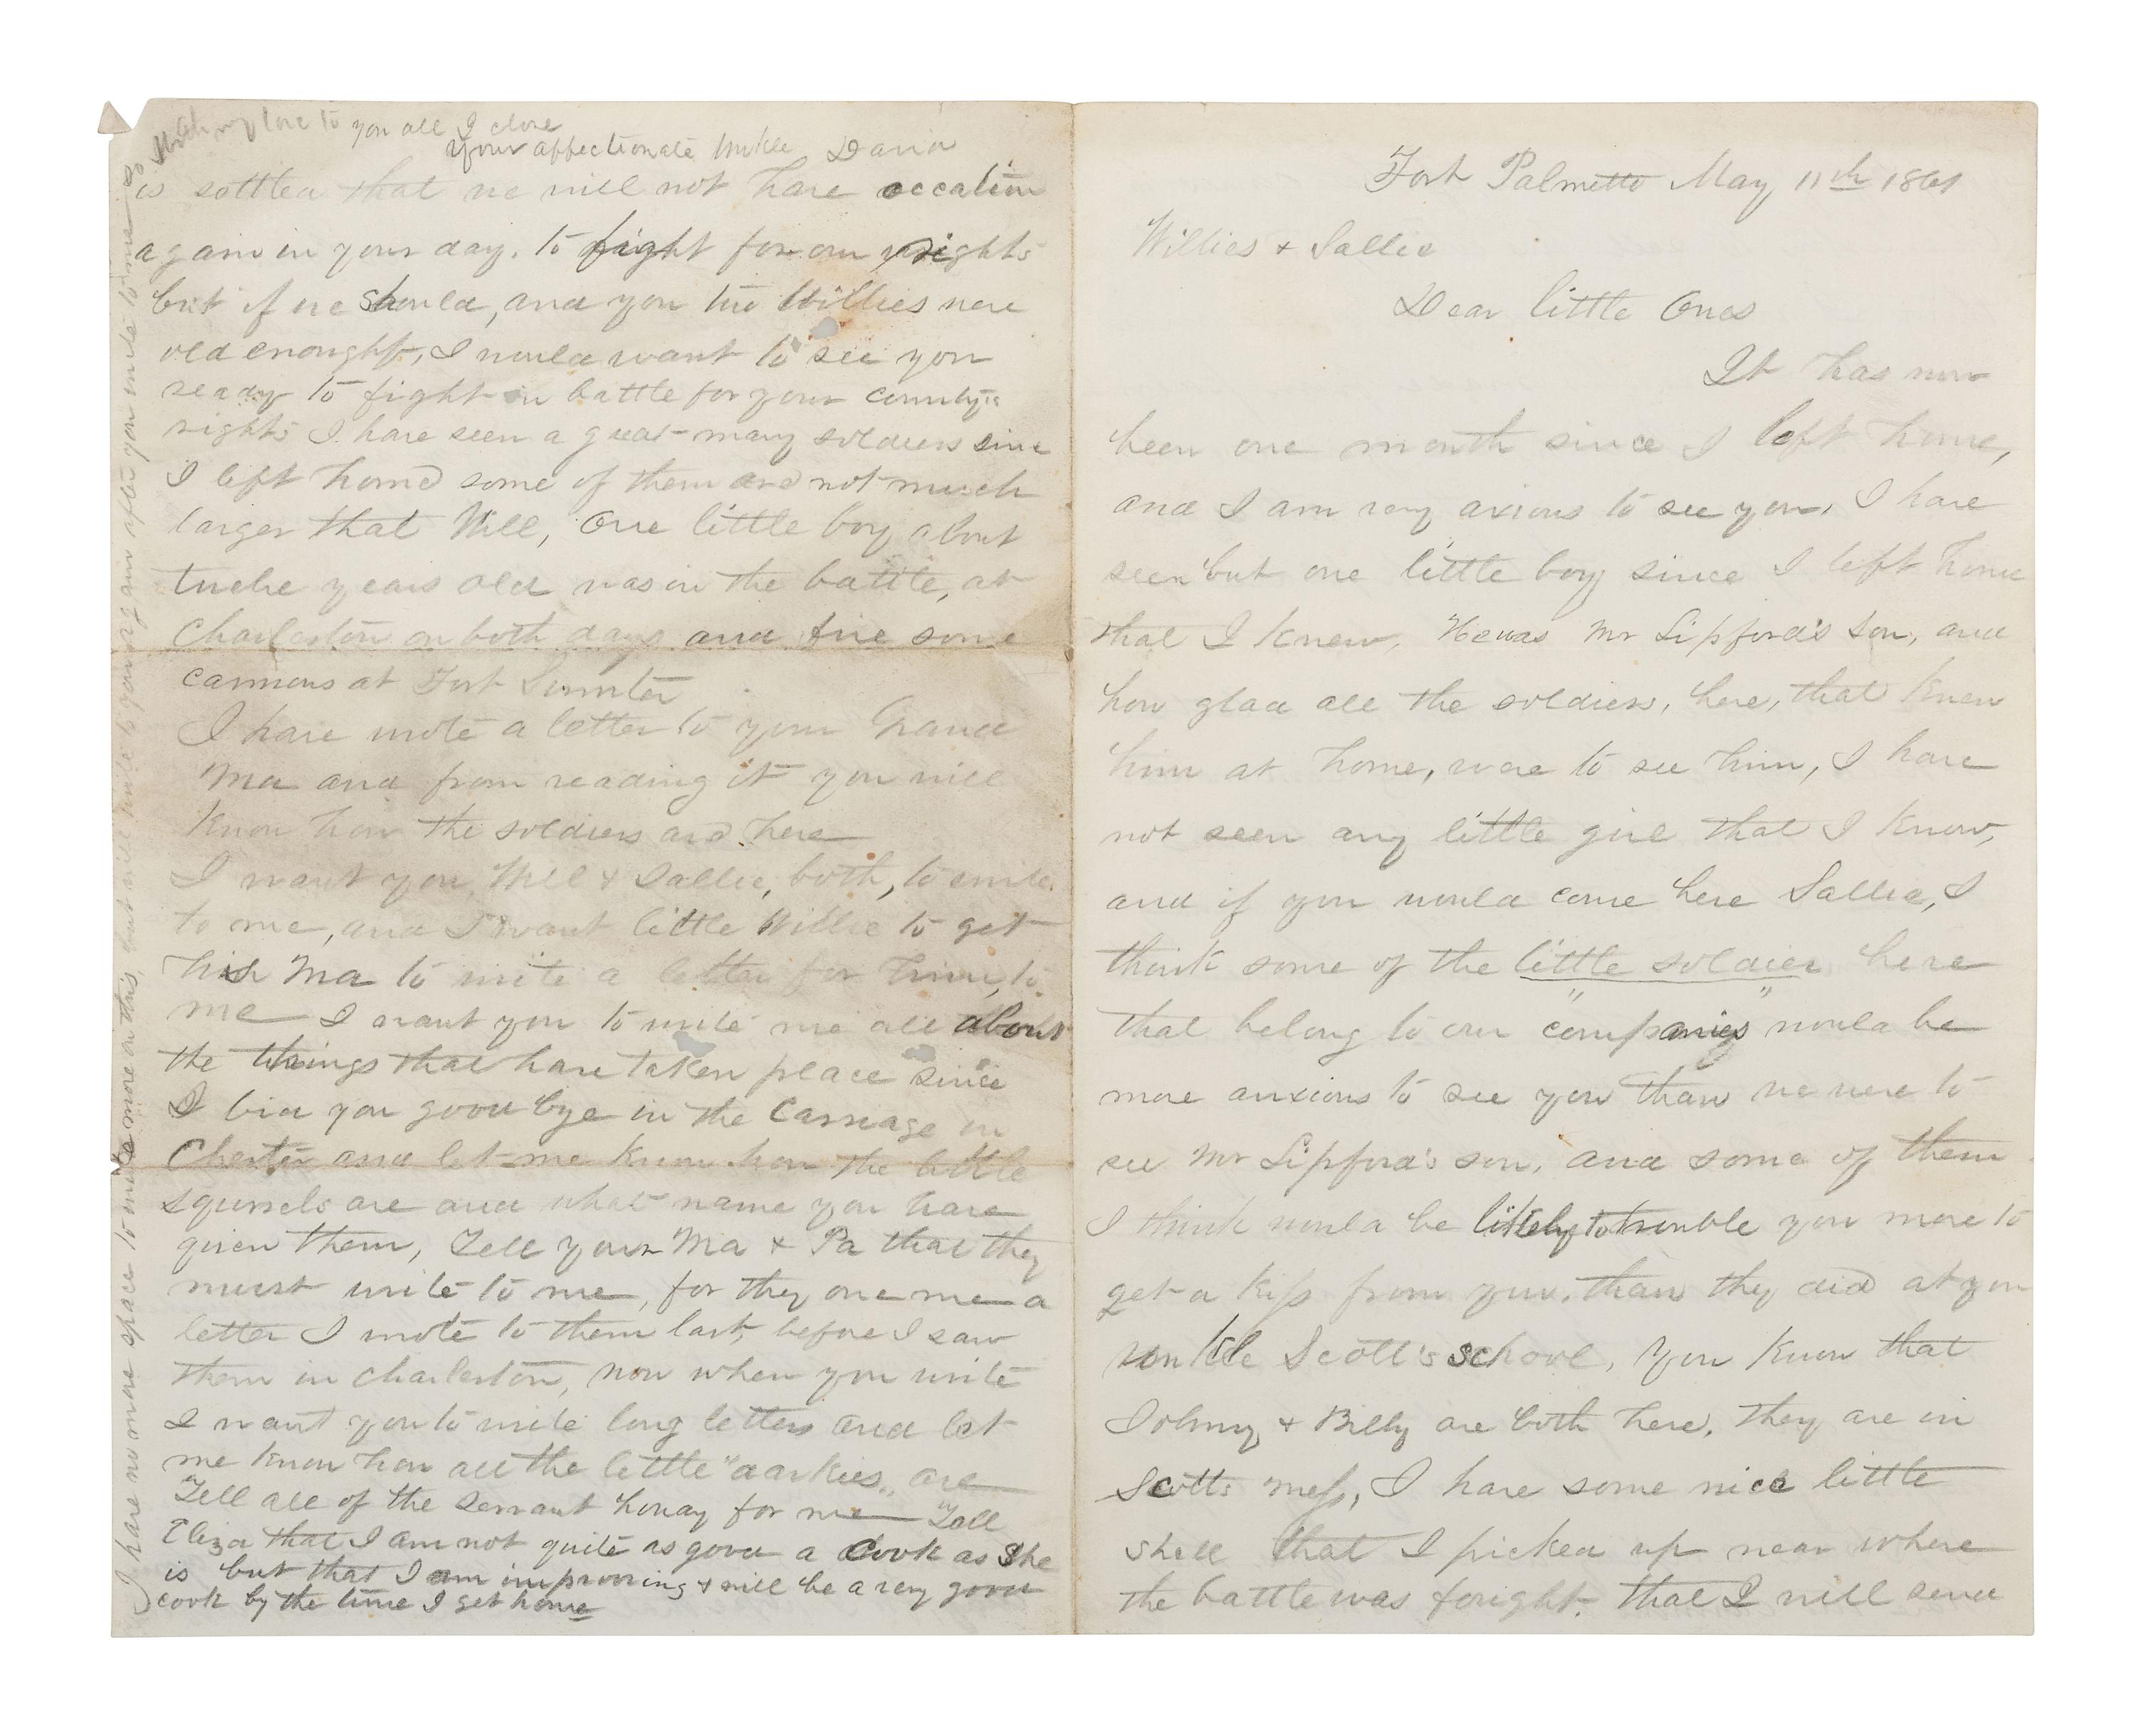 Fort Palmetto May 11th 1861
Willies & Sallie
Dear little Ones
It has now
been one month since I left home,
and I am very axious to see you, I have
seen but one little boy since I left home
that I knew, He was Mr Lipford's son, and
how glad all the soldiers, here, that knew
him at home, were to see him, I have
not seen any little girl that I know,
and if you would come here Sallie, I
think some of the little soldier here
that belong to our "companies" would be
more anxious to see you than we were to
see Mr Lipford's son, and some of them
I think would be likely to trouble you more to
get a kiss from you, than they did at you
unkle Scott's school, You know that
Johnny & Billy are both here, they are in
Scotts mess, I have some nice little
shell that I picked up near where
the battle was fought, that I will send
is settled that we will not have occation
again in your day, to fight for our rights
but if we should, and you two Willies were
old enought, I would want to see you
ready to fight in battle for your countys
rights I have seen a great many soldiers since
I left home some of them are not much
larger that Will, One little boy about
twelve years old was in the battle, at
Charleston on both days and fire some
cannons at Fort Sumter
I have wrote a letter to your Grand
Ma and from reading it you will
know how the soldiers are here
I want you, Will & Sallie, both, to write
to me, and I want little Willie to get
his Ma to write a letter for him, to
me I want you to write me all about
the things that have taken place since
I bid you good bye in the Carriage in
Chester and let me know how the little
squirrels are and what name you have
given them, Tell your Ma & Pa that they
must write to me, for they owe me a
letter I wrote to them last, before I saw
them in Charleston, now when you write
I want you to write long letters and let
me know how all the little "darkies" are
Tell all of the servant howdy for me Tell
Eliza that I am not quite as good a Cook as She
is but that I am improving & will be a very good
cook by the time I get home
I have no more space to write more on this, but will write to you again after you write to me so
With my love to you all I close
Your affectionate Unkle David